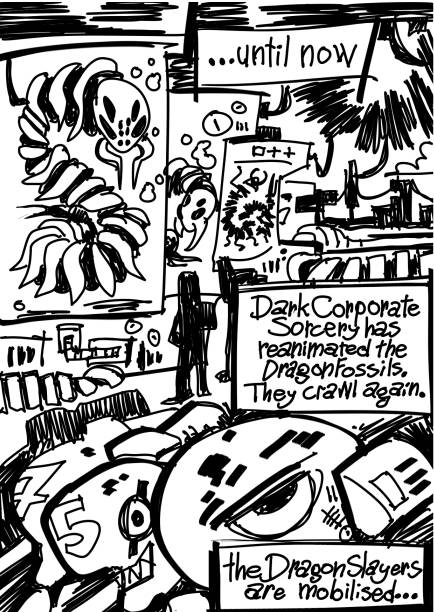 ...until now
Dark Corporate
Sorcery has
reanimated the
DragonFossils.
They crawl again.
75
the DragonSlayers
are mobilised...